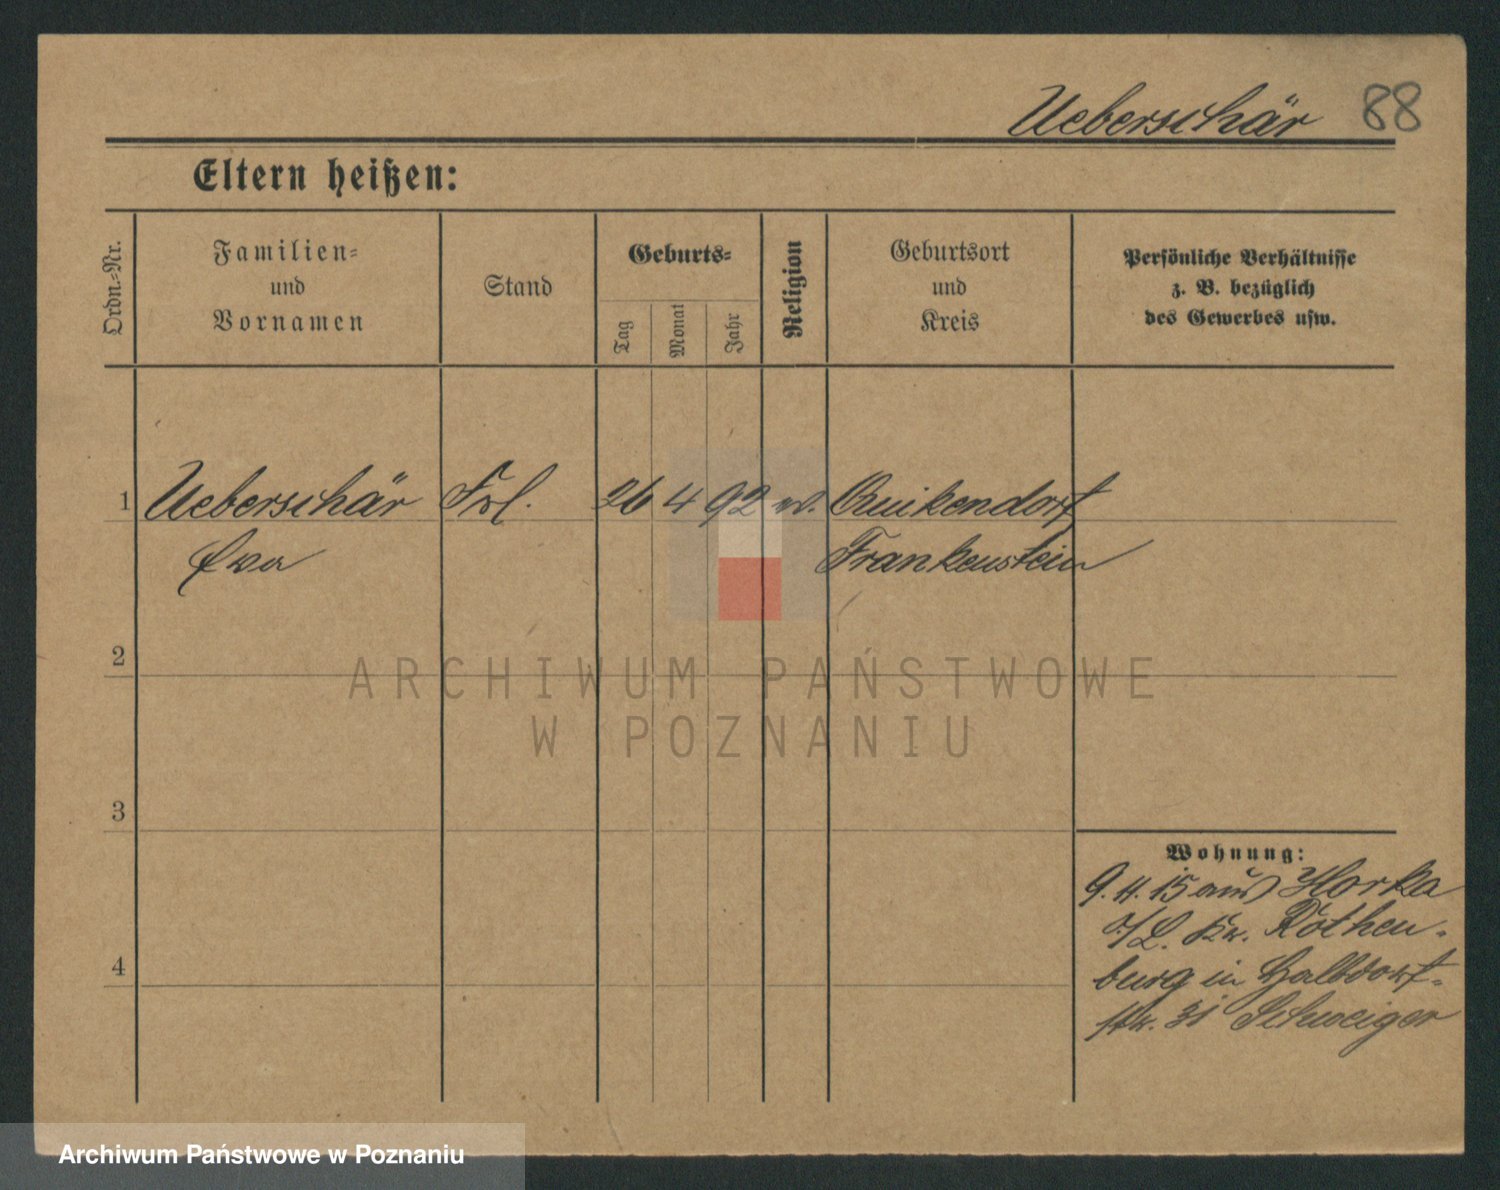 Ueberschär 88
Eltern heißen:
Ordn.-Nr.
Familien-
und
Vornamen
Stand
Geburts-
Tag
Monat
Jahr
Religion
Geburtsort
und
Kreis
Persönliche Verhältnisse
z. B. bezüglich
des Gewerbes usw.
1 Ueberschär Frl. 26 4 92 Quikendorf
Eva Frankenstein
2
ARCHIWUM PAŃSTWOWE
W POZNANIU
3
Wohnung:
9. 4. 15 aus Horka
O/L. Kr. Rothen-
4
burg in Halbdorf-
str. 31 Schweiger
Archiwum Państwowe w Poznaniu